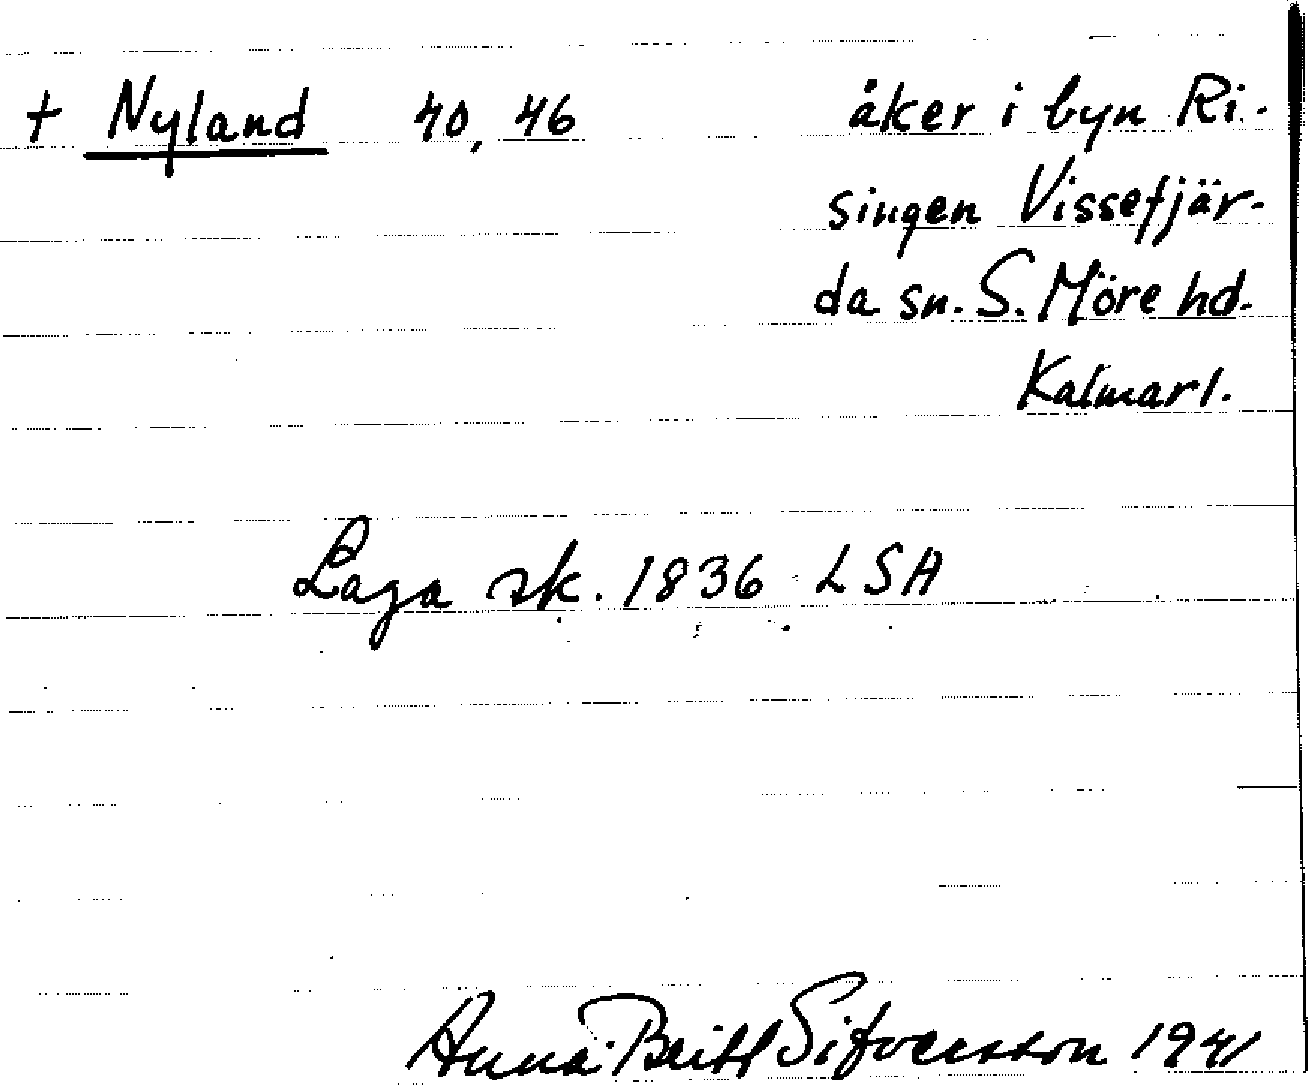 + Nyland 40, 46 åker i byn Ri-
singen Vissefjär-
da sn. S. Möre hd.
Kalmar l.
Laga sk. 1836 LSA
Anna-Britt Sifversson 1941